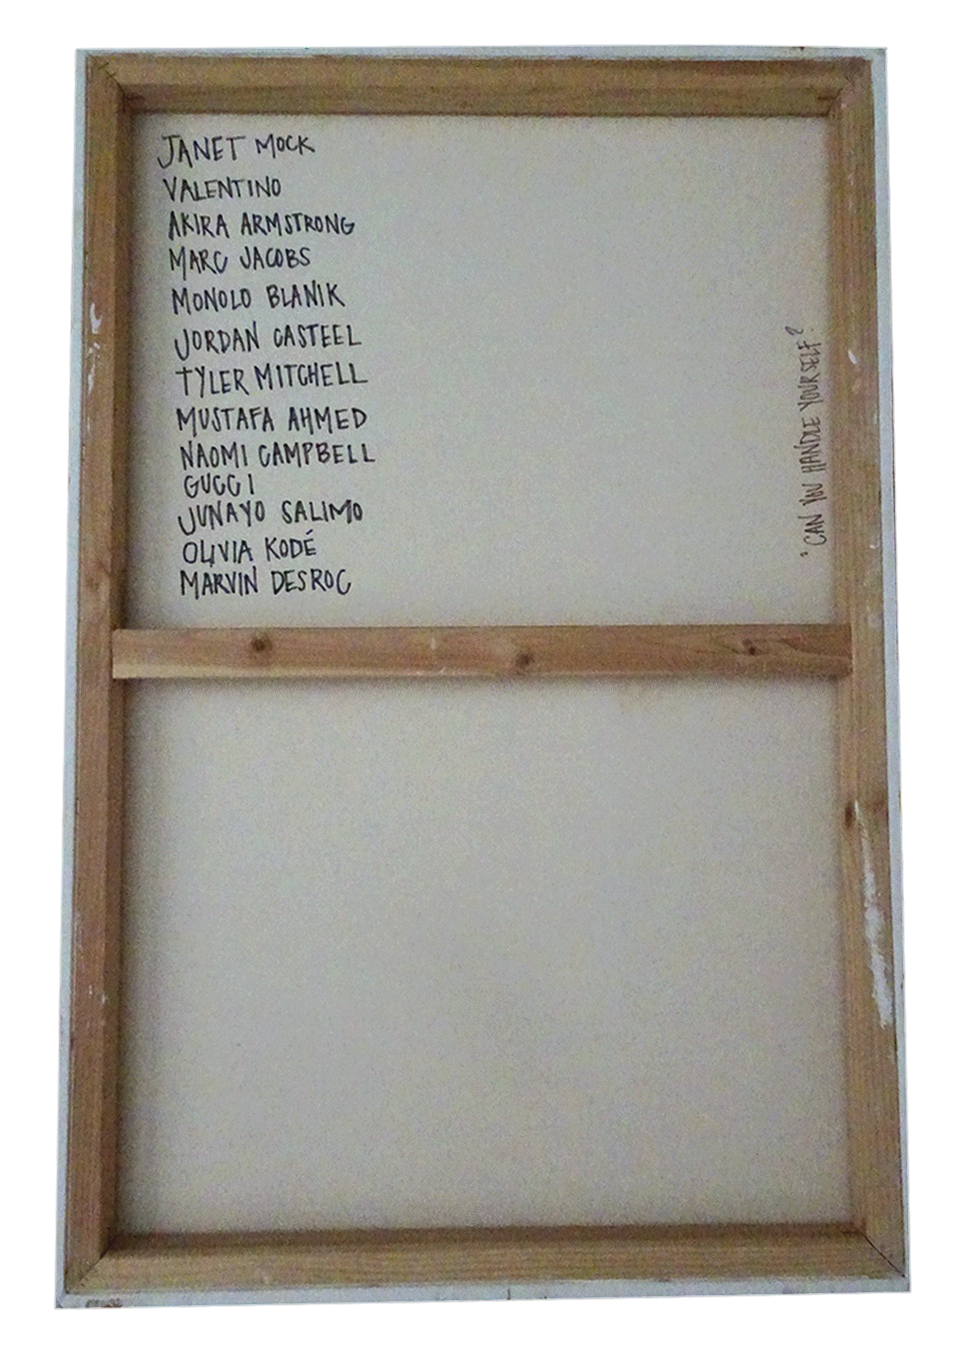 JANET MOCK
VALENTINO
AKIRA ARMSTRONG
MARC JACOBS
MONOLO BLANIK
JORDAN CASTEEL
TYLER MITCHELL
MUSTAFA AHMED
NAOMI CAMPBELL
GUCCI
JUNAYO SALIMO
OLIVIA KODÉ
MARVIN DESROC
"CAN YOU HANDLE YOURSELF?